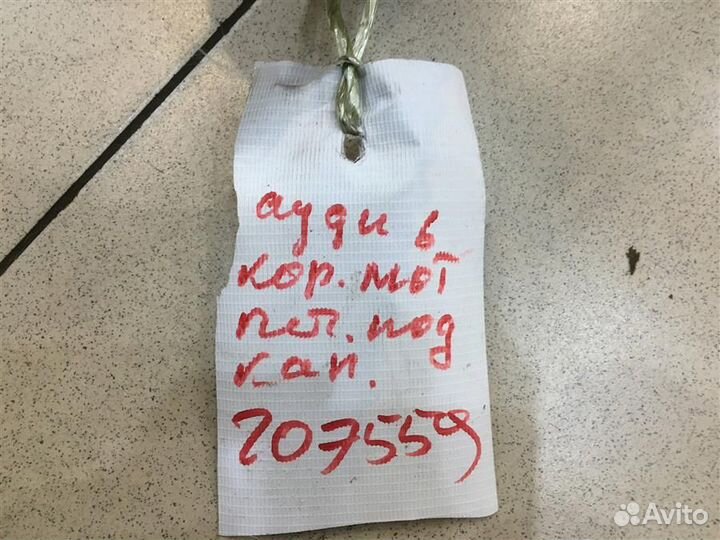 ауди 6
кор. мот
пет. под
кап.
207559
Avito